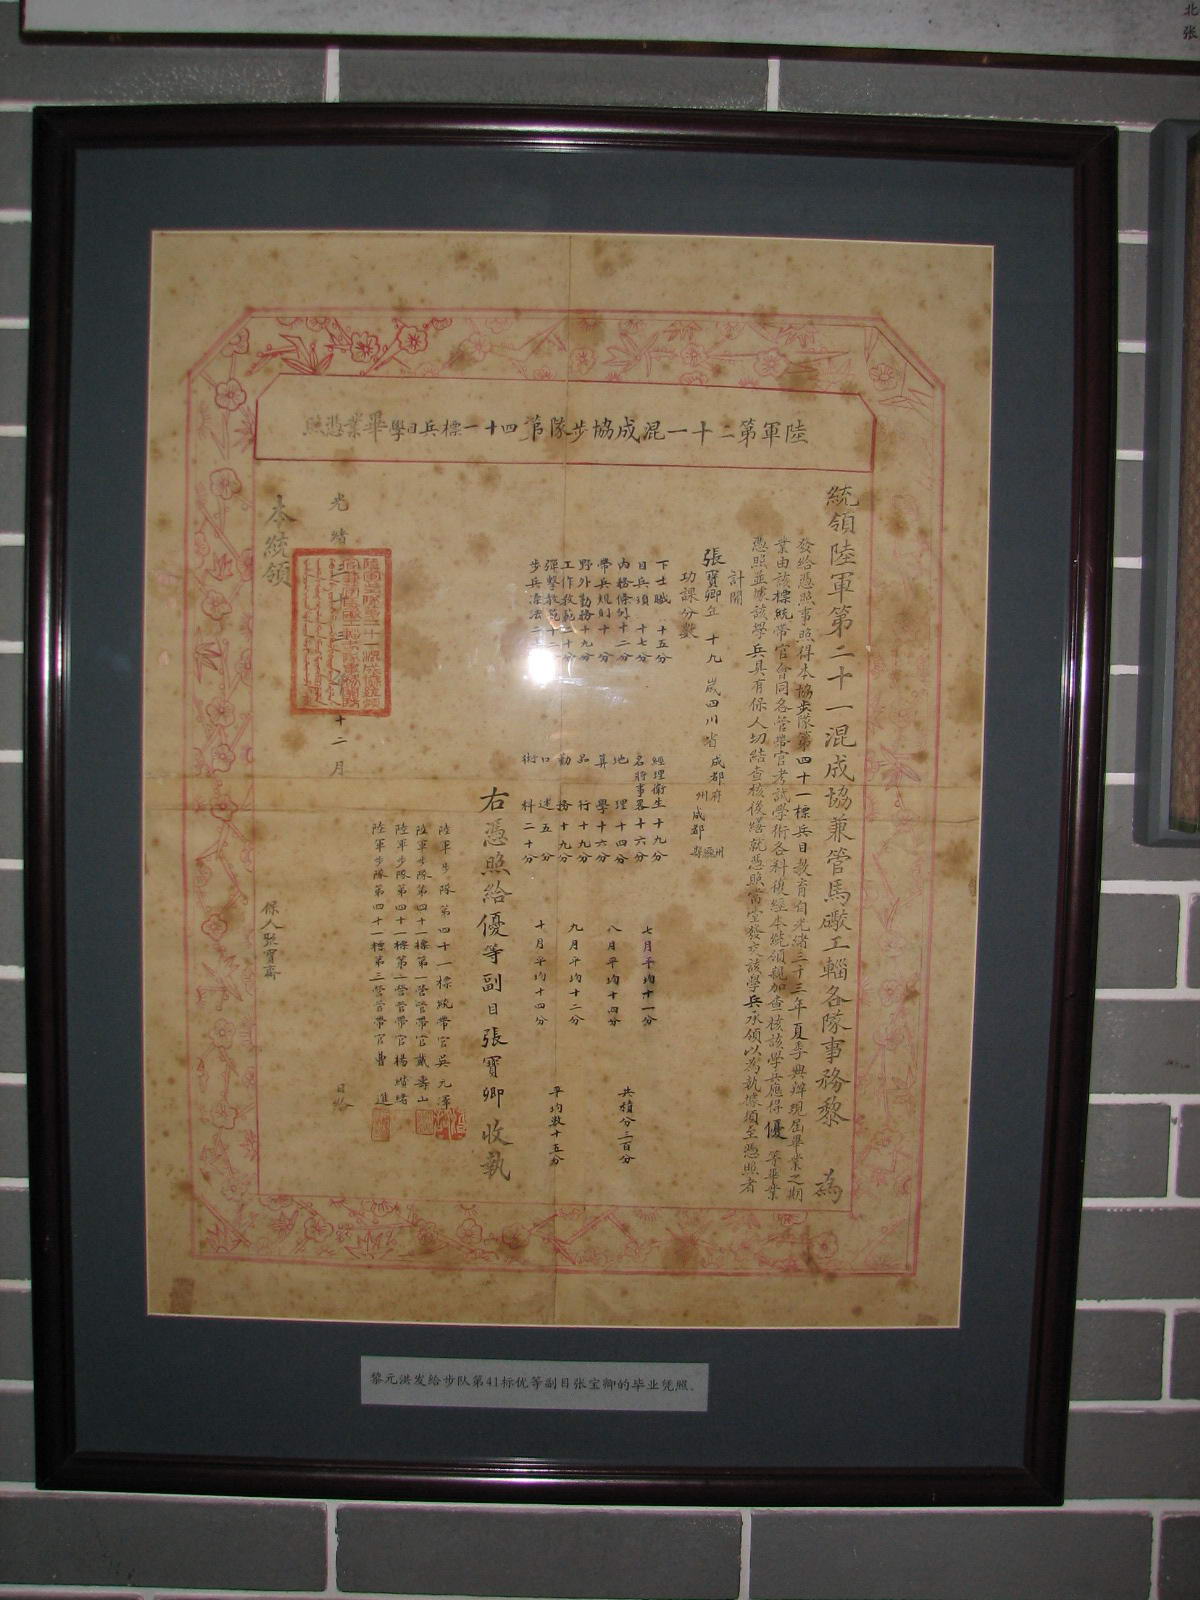 北
张
陸軍第二十一混成協步隊第四十一標兵目學畢業憑照
統領陸軍第二十一混成協兼管馬礮工輜各隊事務黎 為
發給憑照事照得本協步隊第四十一標兵目教育自光緒三十三年夏季興辦現屆畢業之期
業由該標統帶官會同各營帶官考試學術各科復經本統領親加查核該學兵應得優等畢業
憑照並據該學兵具有保人切結查核後繕就憑照當堂發交該學兵承領以為執據須至憑照者
計開
張寶卿年十九歲四川省成都府州成都縣
功課分數
下士職 十五分
目兵須 十七分
內務條例十二分
帶兵規則十分
野外勤務十九分
工作教範二十分
彈擊教範十二分
步兵操法二
經理衛生十九分
名將事畧十六分
地理十四分
算學十六分
品行十九分
勤務十九分
口述五分
術科二十分
七月平均十一分
八月平均十四分
九月平均十二分
十月平均十四分
共積分三百分
平均數十五分
右憑照給優等副目張寶卿收執
陸軍步隊第四十一標統帶官吳元澤
陸軍步隊第四十一標第一營管帶官戴壽山
陸軍步隊第四十一標第二營管帶官楊
陸軍步隊第四十一標第三營管帶官曹進
光緒三十三年十二月 日給
本統領
保人張寶齋
黎元洪发给步队第41标优等副目张宝卿的毕业凭照。